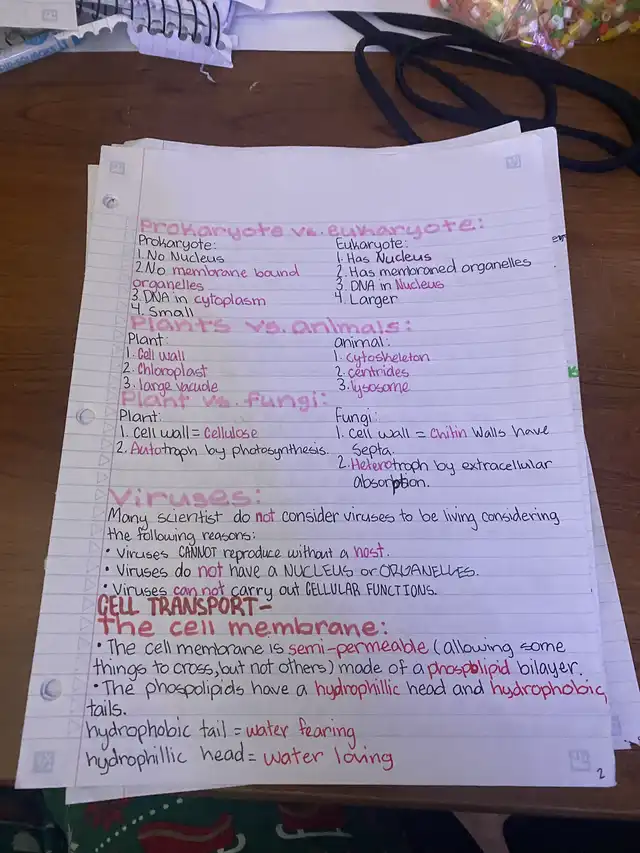 Prokaryote vs. eukaryote:
Prokaryote:
1. No Nucleus
2. No membrane bound
organelles
3. DNA in cytoplasm
4. Small
Eukaryote:
1. Has Nucleus
2. Has membraned organelles
3. DNA in Nucleus
4. Larger
Plants vs. animals:
Plant:
1. Cell wall
2. Chloroplast
3. large vacuole
animal:
1. cytoskeleton
2. centrides
3. lysosome
Plant vs. fungi:
Plant:
1. Cell wall = Cellulose
2. Autotroph by photosynthesis.
Fungi:
1. cell wall = Chitin Walls have
Septa.
2. Heterotroph by extracellular
absorption.
Viruses:
Many scientist do not consider viruses to be living considering
the following reasons:
• Viruses CANNOT reproduce without a host.
• Viruses do not have a NUCLEUS or ORGANELLES.
• Viruses can not carry out CELLULAR FUNCTIONS.
CELL TRANSPORT-
The cell membrane:
• The cell membrane is semi-permeable (allowing some
things to cross, but not others) made of a phospolipid bilayer.
• The phospolipids have a hydrophillic head and hydrophobic
tails.
hydrophobic tail = water fearing
hydrophillic head = water loving
2